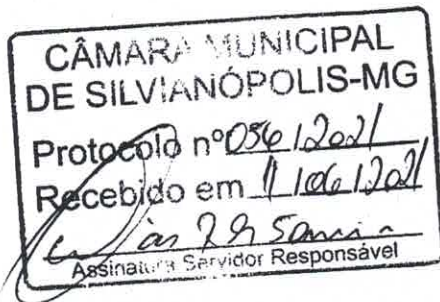 CÂMARA MUNICIPAL
DE SILVIANÓPOLIS-MG
Protocolo nº 056/2021
Recebido em 11/06/2021
Assinatura Servidor Responsável